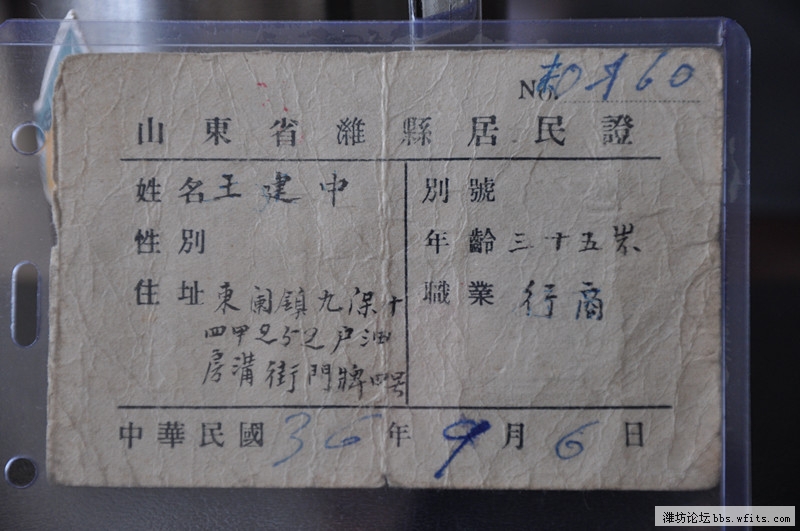 No.
山東省濰縣居民證
姓名 王建中
別號
性別
年齡 三十五岁
住址 東関鎮九保十
四甲252户油
房溝街門牌四号
職業 行商
中華民國36年9月6日
濰坊论坛 bbs.wfits.com